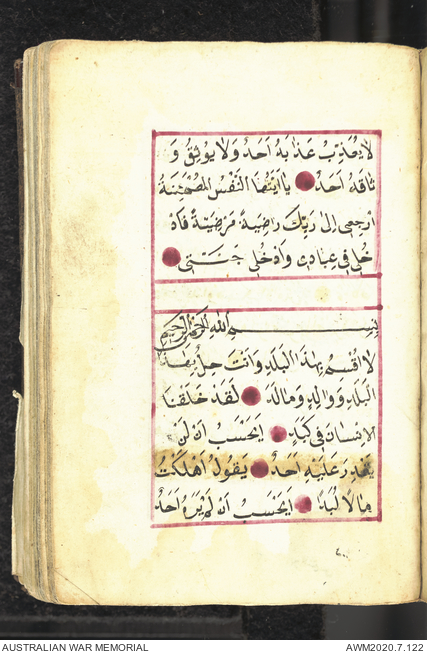 لَا يُعَذِّبُ عَذَابَهُ اَحَدٌ وَلَا يُوثِقُ وَ
ثَاقَهُ اَحَدٌ يَا اَيَّتُهَا النَّفْسُ الْمُطْمَئِنَّةُ
اَرْجِعِي اِلَى رَبِّكِ رَاضِيَةً مَرْضِيَّةً فَادْ
خُلِي فِي عِبَادِي وَادْخُلِي جَنَّتِي
بِسْمِ اللّٰهِ الرَّحْمٰنِ الرَّحِيمِ
لَا اُقْسِمُ بِهٰذَا الْبَلَدِ وَاَنْتَ حِلٌّ بِهٰذَا
الْبَلَدِ وَوَالِدٍ وَمَا وَلَدَ لَقَدْ خَلَقْنَا
الْاِنْسَانَ فِي كَبَدٍ اَيَحْسَبُ اَنْ لَنْ
يَقْدِرَ عَلَيْهِ اَحَدٌ يَقُولُ اَهْلَكْتُ
مَالًا لُبَدًا اَيَحْسَبُ اَنْ لَمْ يَرَهُ اَحَدٌ
AUSTRALIAN WAR MEMORIAL AWM2020.7.122